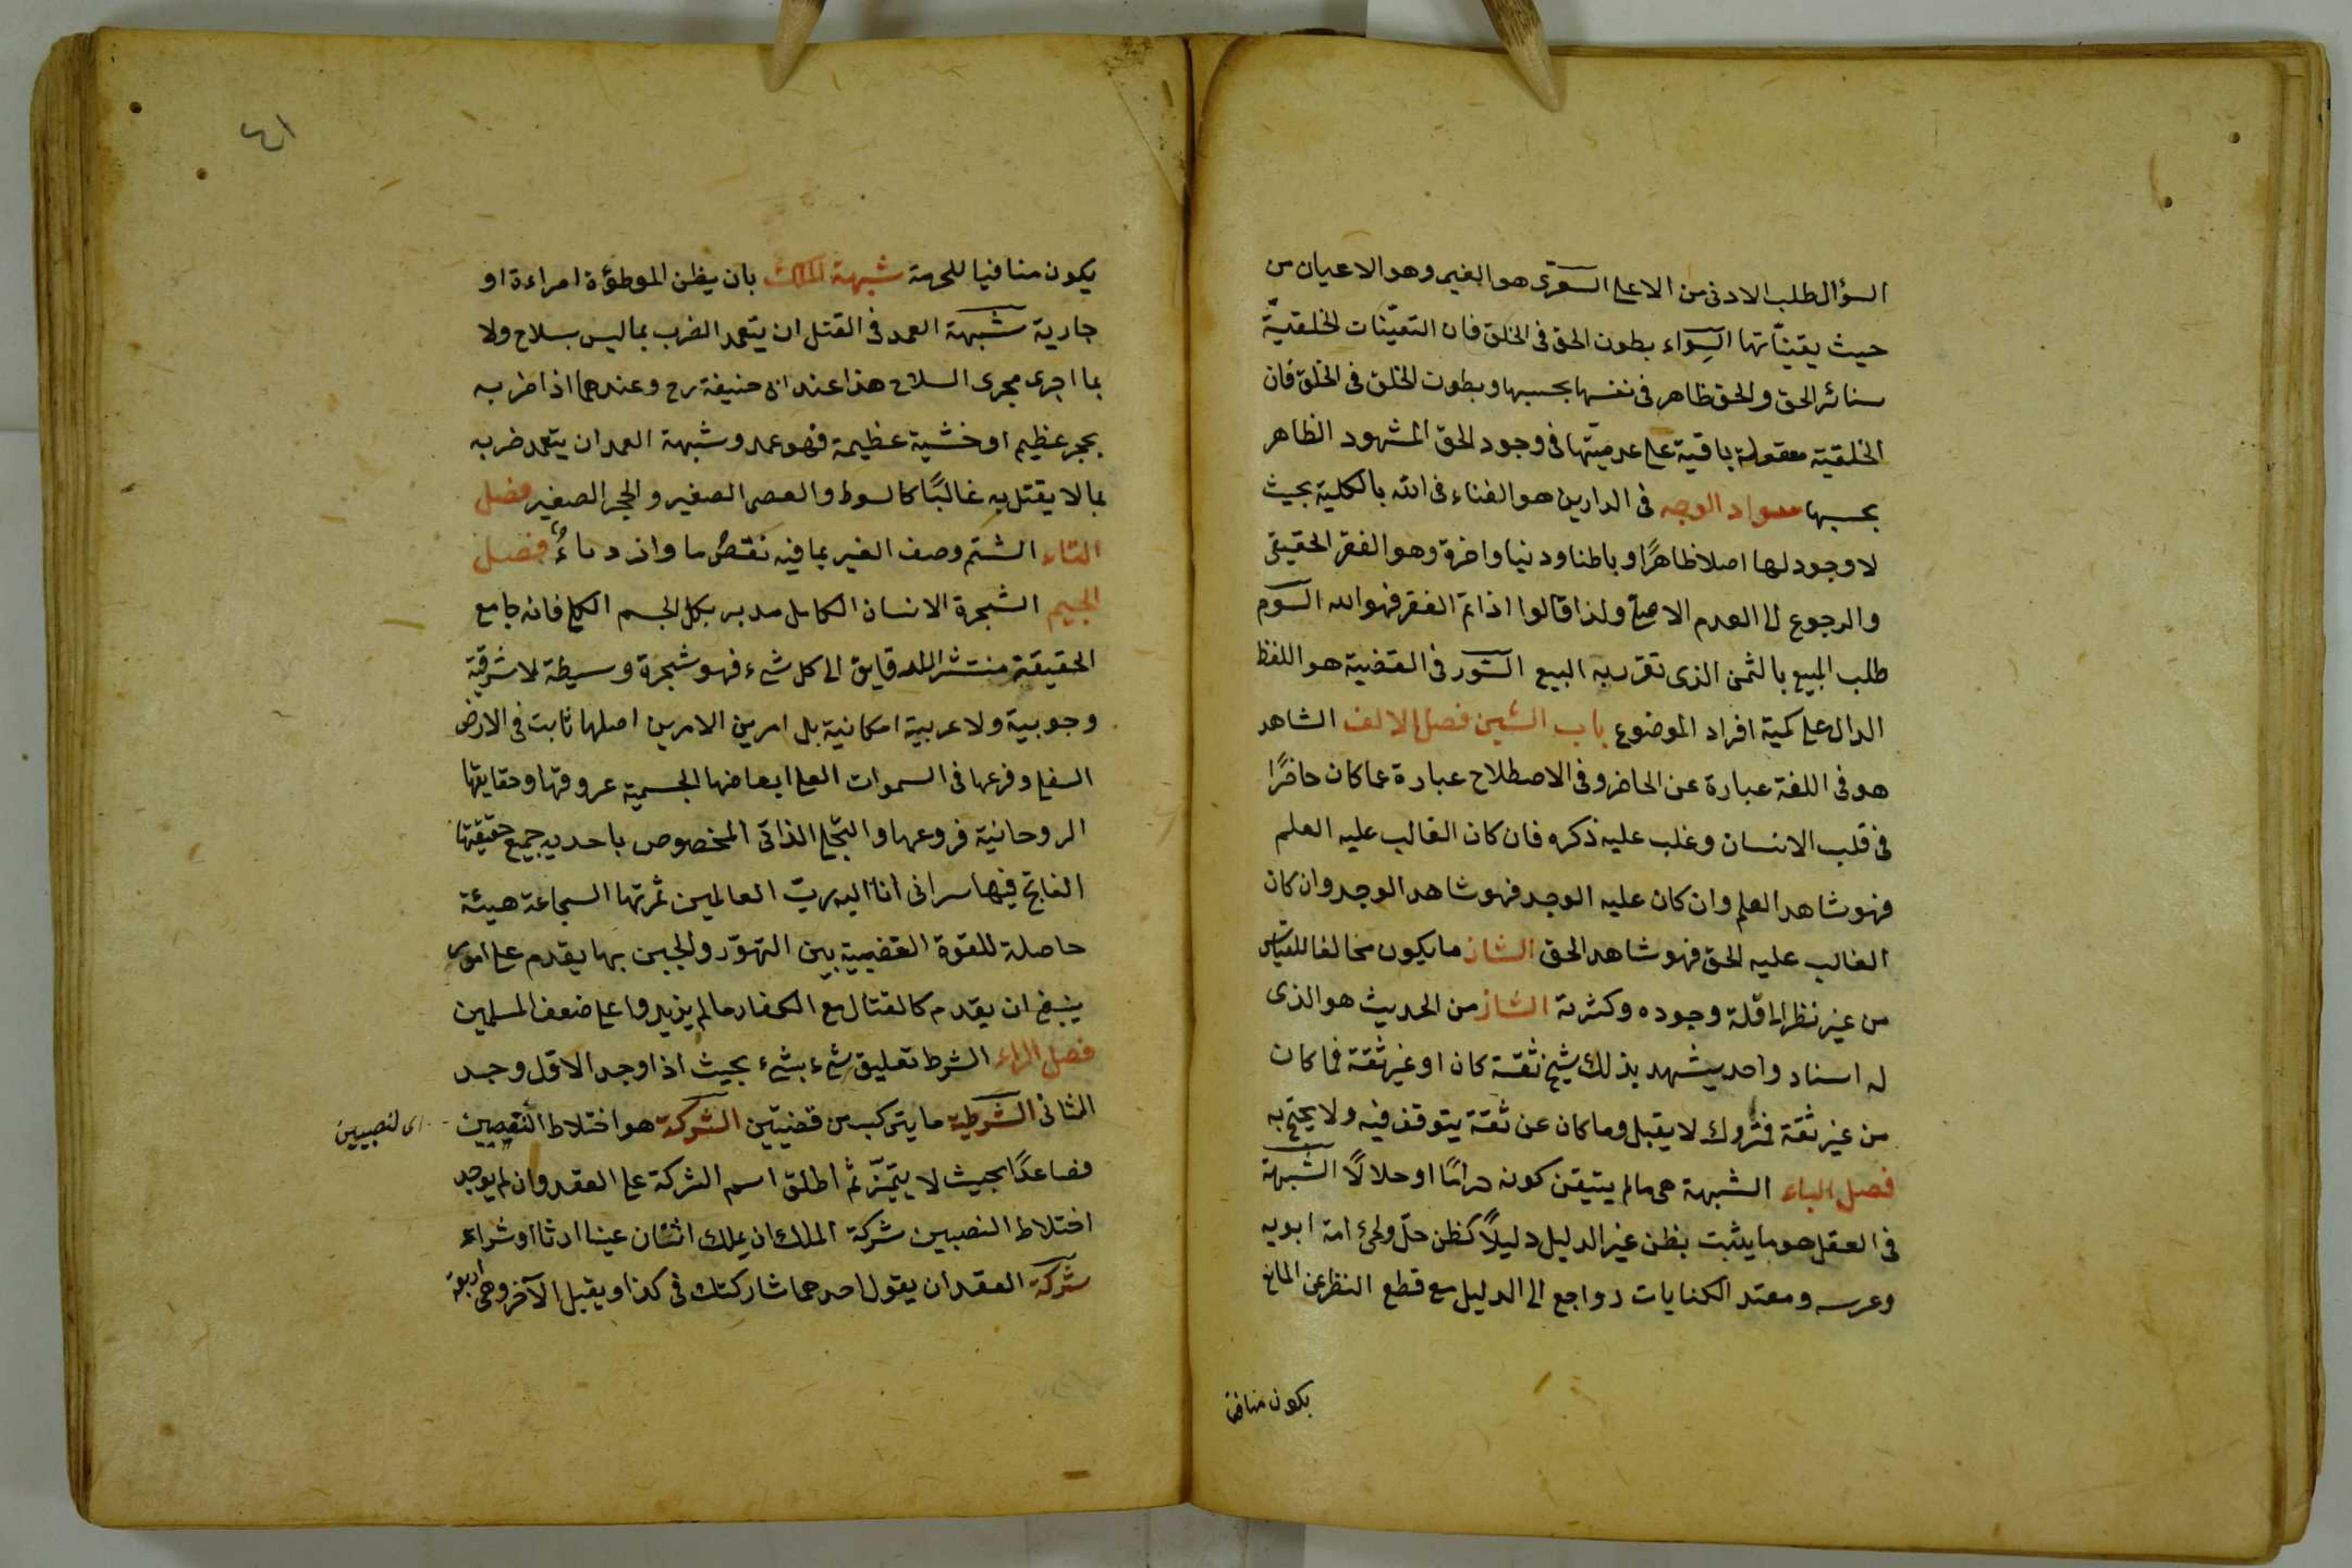 السؤال طلب الادنى من الاعلى السوى هو الغير وهو الاعيان من
حيث يقيناتها السواء بطون الحق فى الخلق فان التعينات الخلقية
ستائر الحق والحق ظاهر فى نفسها بحسبها وبطون الخلق فى الخلق فان
الخلقية معقولة باقية على عدميتها فى وجود الحق المشهود الظاهر
بحسبها سواد الوجه فى الدارين هو الفناء فى الله بالكلية بحيث
لا وجود لها اصلا ظاهرًا وباطنا ودنيا واخرة وهو الفقر الحقيقى
والرجوع الى العدم الاصلى ولذا قالوا اذا تم الفقر فهو الله السوم
طلب المبيع بالثمن الذى تقرر به البيع السور فى القضية هو اللفظ
الدال على كمية افراد الموضوع باب الشين فصل الالف الشاهد
هو فى اللغة عبارة عن الحاضر وفى الاصطلاح عبارة عما كان حاضرًا
فى قلب الانسان وغلب عليه ذكره فان كان الغالب عليه العلم
فهو شاهد العلم وان كان عليه الوجد فهو شاهد الوجد وان كان
الغالب عليه الحق فهو شاهد الحق الشاذ ما يكون مخالفا للقياس
من غير نظر الى قلة وجوده وكثرته الشاذ من الحديث هو الذى
له اسناد واحد يشهد بذلك شيخ ثقة كان او غير ثقة فما كان
من غير ثقة فمتروك لا يقبل وما كان عن ثقة يتوقف فيه ولا يحتج به
فصل الباء الشبهة هى ما لم يتيقن كونه حرامًا او حلالًا الشبهة
فى العقل هو ما يثبت بظن غير الدليل دليلًا كظن حل وطئ امة ابويه
وعرسه ومعتد الكنايات رواجع الى الدليل مع قطع النظر عن المانع
يكون منافيا
٤١
يكون منافيا للحرمة شبهة الملك بان يظن الموطؤة امراءة او
جارية شبهة العمد فى القتل ان يتعمد الضرب بما ليس بسلاح ولا
بما اجرى مجرى السلاح هذا عند ابى حنيفة رح وعندهما اذا ضربه
بحجر عظيم او خشبة عظيمة فهو عمد وشبهة العمد ان يتعمد ضربه
بما لا يقتل به غالبًا كالسوط والعصى الصغير والحجر الصغير فصل
التاء الشتم وصف الغير بما فيه نقصٌ ما وازدراءٌ فصل
الجيم الشجرة الانسان الكامل مدبر بكل الجسم الكلى فانه جامع
الحقيقة منتشر الدقايق الى كل شىء فهو شجرة وسيطة لا شرقية
وجوبية ولا عربية امكانية بل امر بين الامرين اصلها ثابت فى الارض
السفلى وفرعها فى السموات العلى ابعاضها الجسمية عروقها وحقايقها
الروحانية فروعها والتجلى الذاتى المخصوص باحدية جميع حقيقتها
الفاتح فيها سر انى انا اليه رب العالمين ثمرتها السجاعة هيئة
حاصلة للقوة الغضبية بين التهور والجبن بها يقدم على امور
ينبغى ان يقدم كالقتال مع الكفار ما لم يزيدوا على ضعف المسلمين
فصل الراء الشرط تعليق شىء بشىء بحيث اذا وجد الاول وجد
الثانى الشرطية ما يتركب من قضيتين الشركة هو اختلاط النصيبين
اى لنصيبين
فصاعدًا بحيث لا يتميز ثم اطلق اسم الشركة على العقد وان لم يوجد
اختلاط النصيبين شركة الملك ان يملك اثنان عينا ارثا او شراء
شركة العقد ان يقول احدهما شاركتك فى كذا ويقبل الآخر وهى اربعة